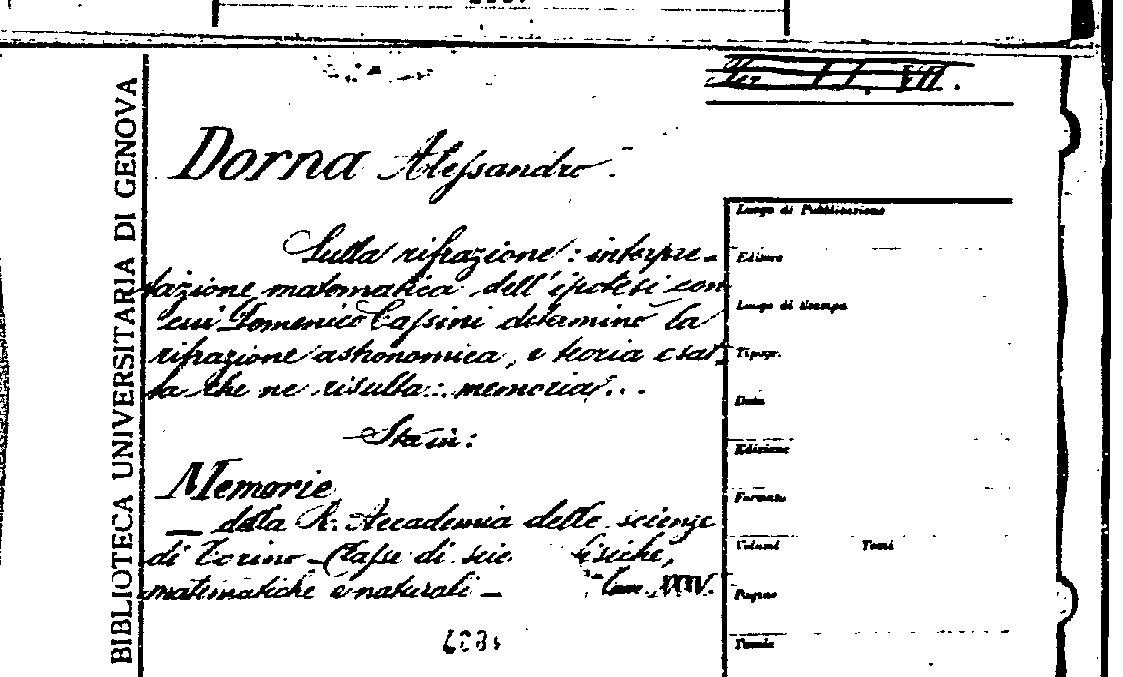 BIBLIOTECA UNIVERSITARIA DI GENOVA
VII.
Dorna Alessandro.
Sulla rifrazione: interpre-
tazione matematica dell'ipotesi con
cui Domenico Cassini determinò la
rifrazione astronomica, e teoria esat-
ta che ne risulta: memoria...
Sta in:
Memorie
— della R. Accademia delle scienze
di Torino - Classe di scie fisiche,
matematiche e naturali —
Luogo di Pubblicazione
Editore
Luogo di Stampa
Tipogr.
Data
Edizione
Formato
Volumi Tomi
Pagine
Tavole